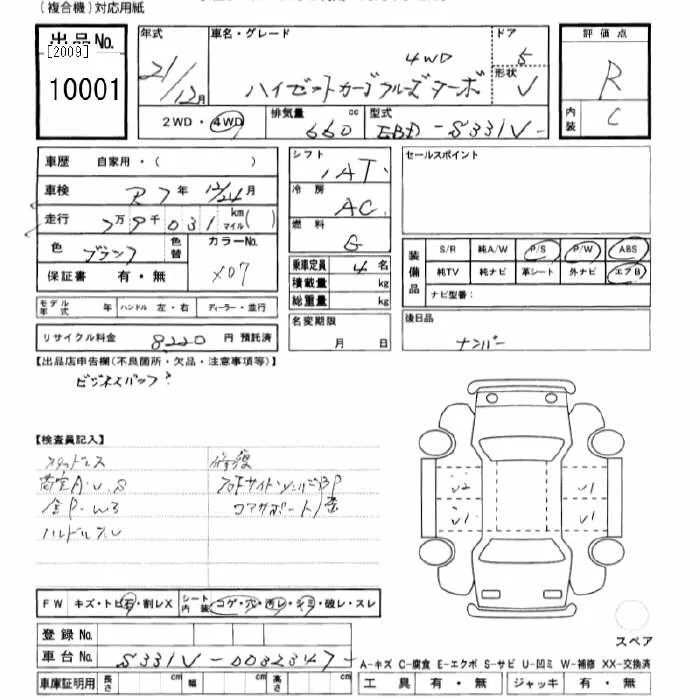 (複合機)対応用紙
出品No.
[2009]
10001
年式
21/12月
車名・グレード
4WD
ハイゼットカーゴクルーズターボ
ドア
5
形状
V
評価点
R
内装
C
2WD・4WD
排気量
660
cc
型式
EBD-S331V-
車歴 自家用・( )
車検 R7年 12/24月
走行 7万9千031 km マイル( )
色 ブラック 色替
カラーNo.
X07
保証書 有・無
モデル年式 年 ハンドル 左・右 ディーラー・並行
リサイクル料金 8220 円 預託済
シフト
IAT
冷房
AC
燃料
G
乗車定員 4 名
積載量 kg
総重量 kg
名変期限
月 日
セールスポイント
装備品
S/R 純A/W P/S P/W ABS
純TV 純ナビ 革シート 外ナビ エアB
ナビ型番:
後日品
ナンバー
【出品店申告欄(不良箇所・欠品・注意事項等)】
ビジネスパック?
【検査員記入】
スタッドレス
A・U.S
全P.W3
ハンドルスレ
修復
コアサポート
U2
U1
U1
U1
FW キズ・トビ石・割レX
シート内装 コゲ・穴・汚レ・シミ・破レ・スレ
登録No.
車台No. S331V-0032347-
車庫証明用 長さ cm 幅 cm 高さ cm
スペア
A-キズ C-腐食 E-エクボ S-サビ U-凹ミ W-補修 XX-交換済
工具 有・無 ジャッキ 有・無